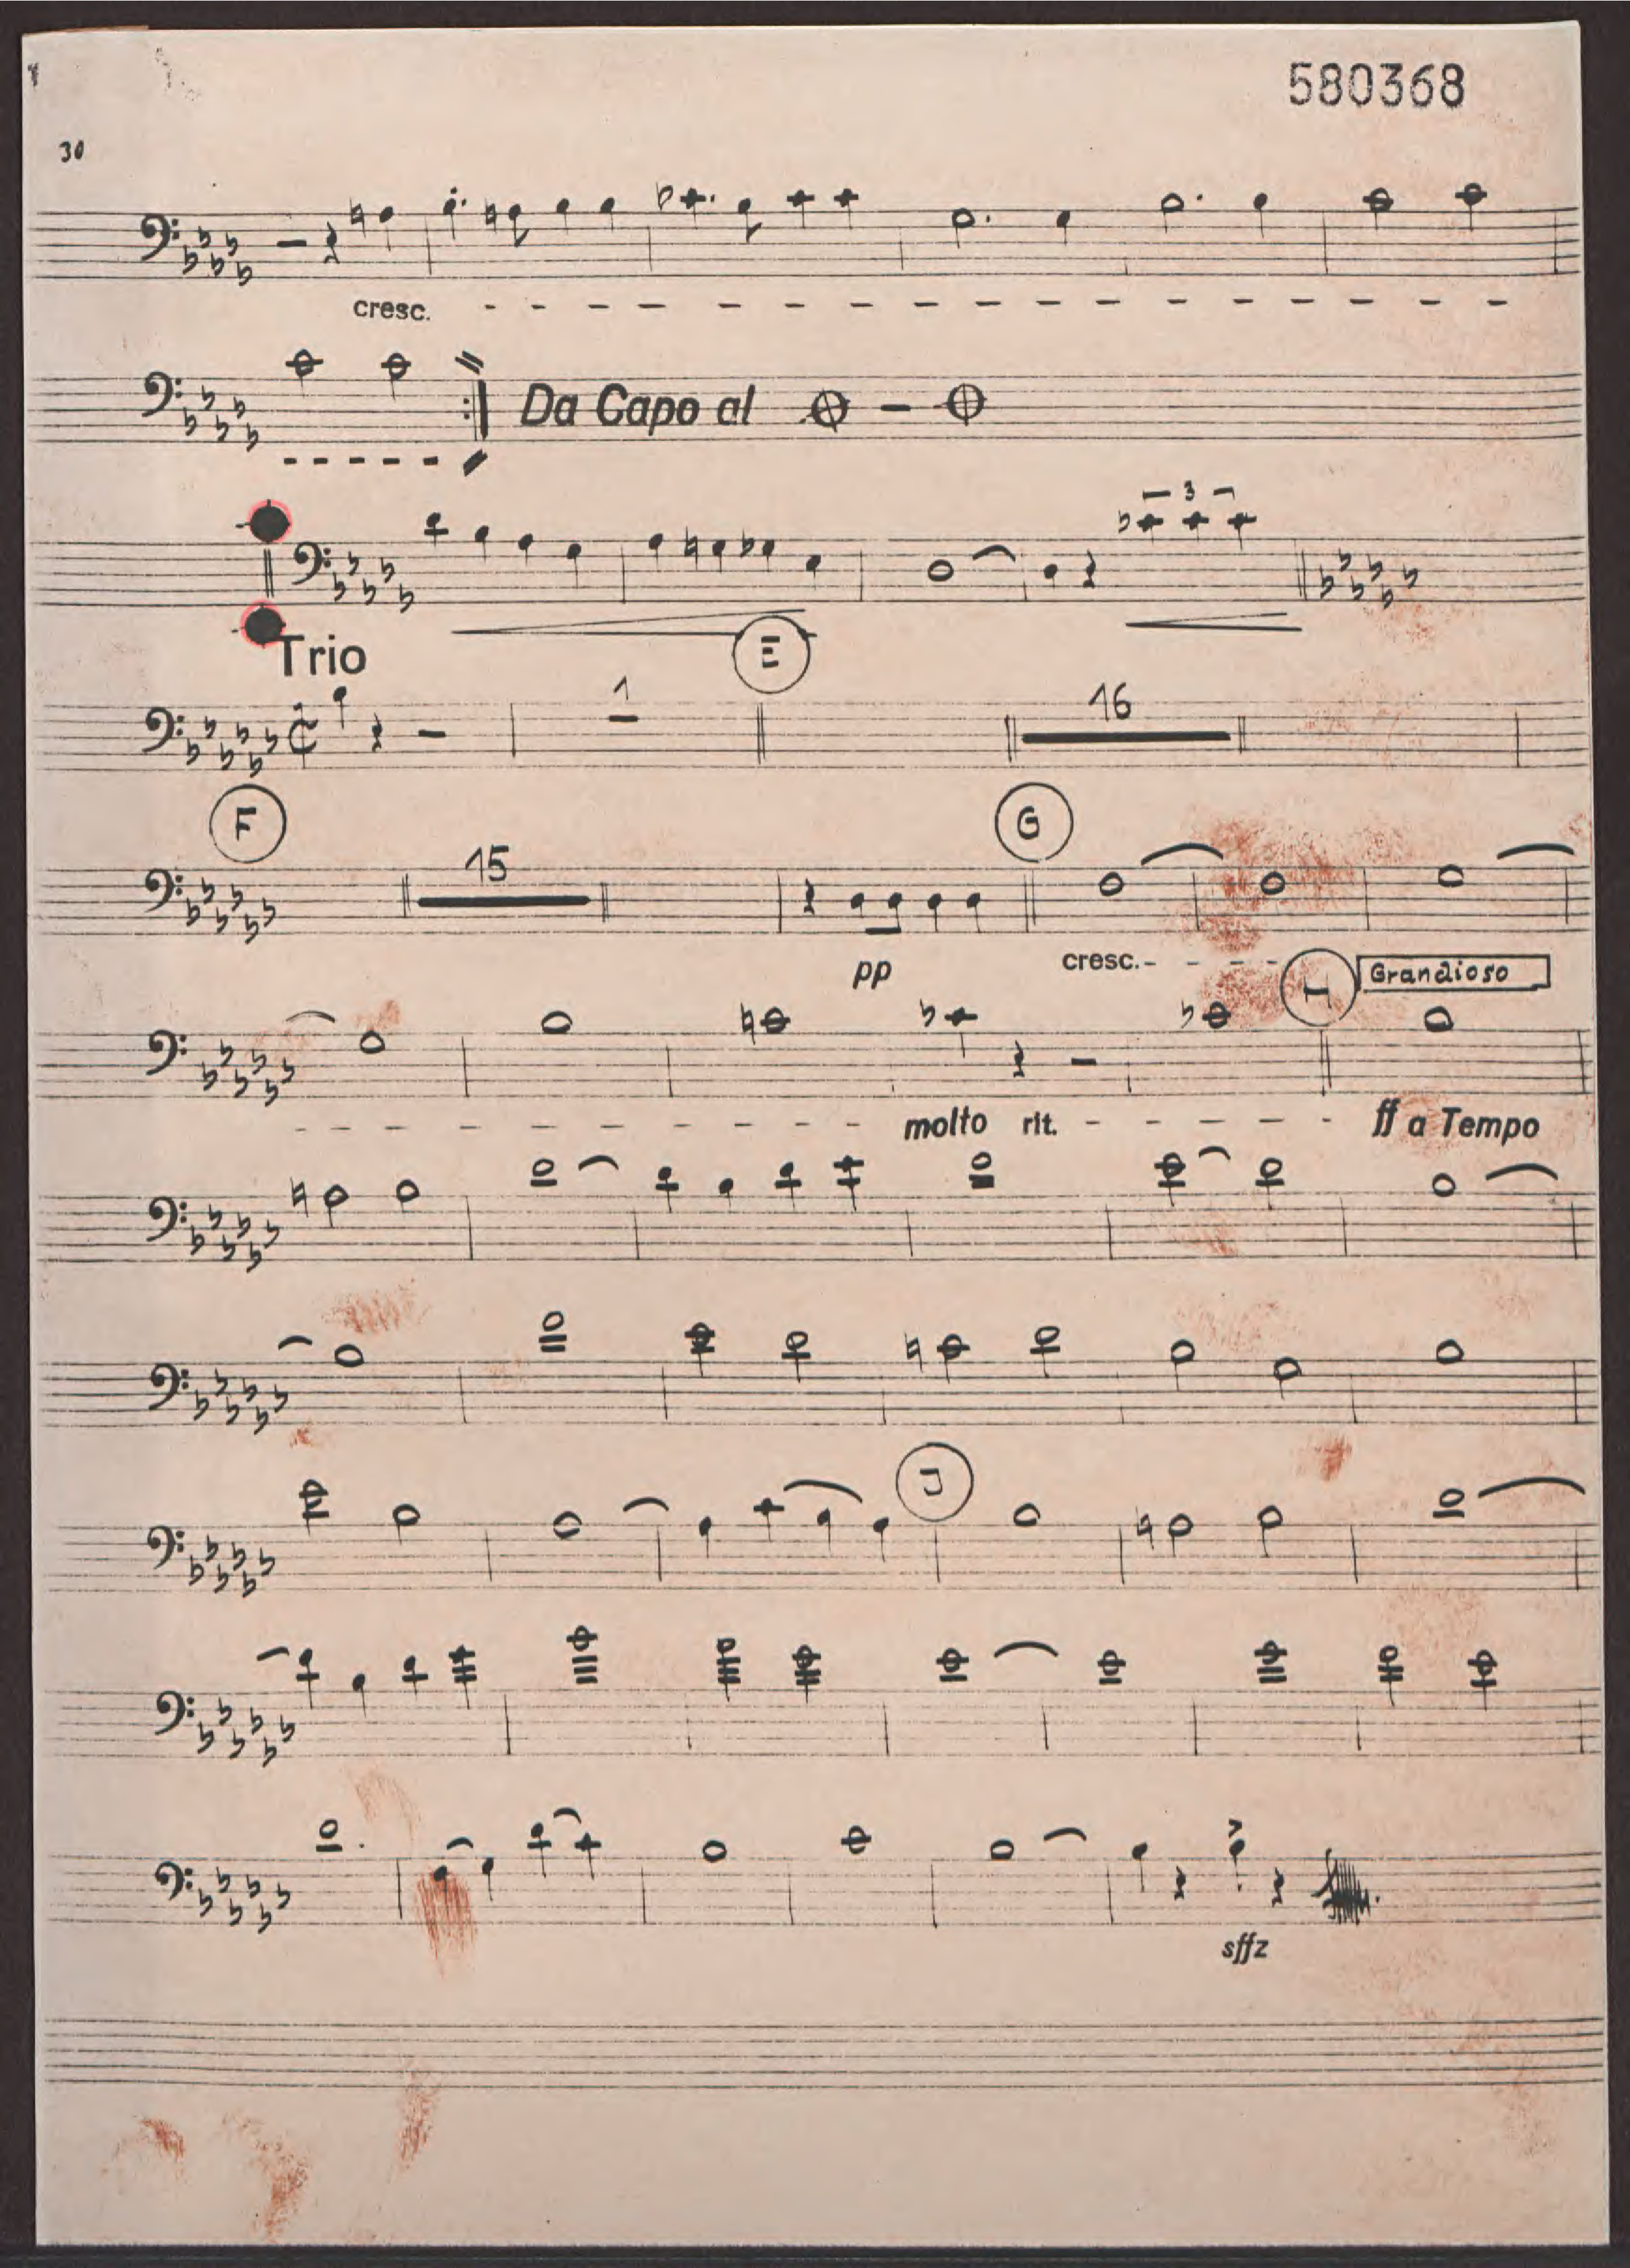 580368
30
cresc.
Da Capo al
3
Trio
E
1
16
F
15
G
pp
cresc.
H
Grandioso
molto rit.
ff a Tempo
J
sffz